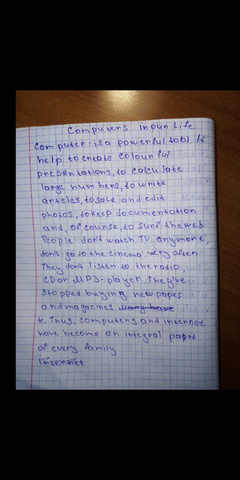 Computers in our Life
Computer is a powerful tool to
help, to create colourful
presentations, to calculate
large numbers, to write
articles, to save and edit
photos, to keep documentation
and, of course, to surf the web
People don't watch TV anymore,
don't go to the cinema very often
They don't listen to the ratio,
CD or MP3-player They've
stopped buying newpaper
and magazines
. Thus, computers and internet
have become an integral papt
of every family
Internet